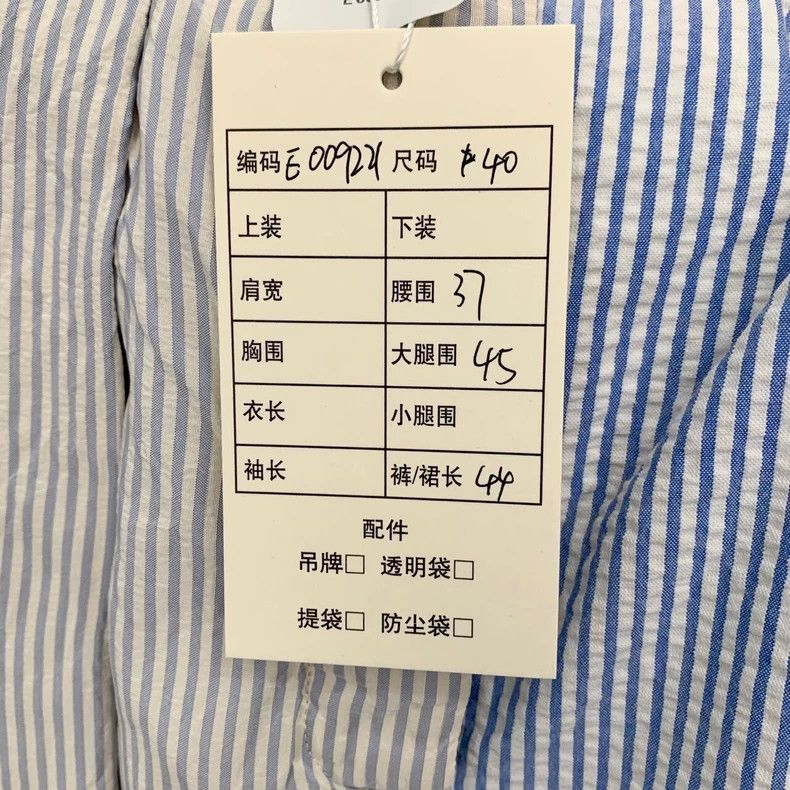 编码 E009221 尺码 40
上装 下装
肩宽 腰围 37
胸围 大腿围 45
衣长 小腿围
袖长 裤/裙长 44
配件
吊牌□ 透明袋□
提袋□ 防尘袋□